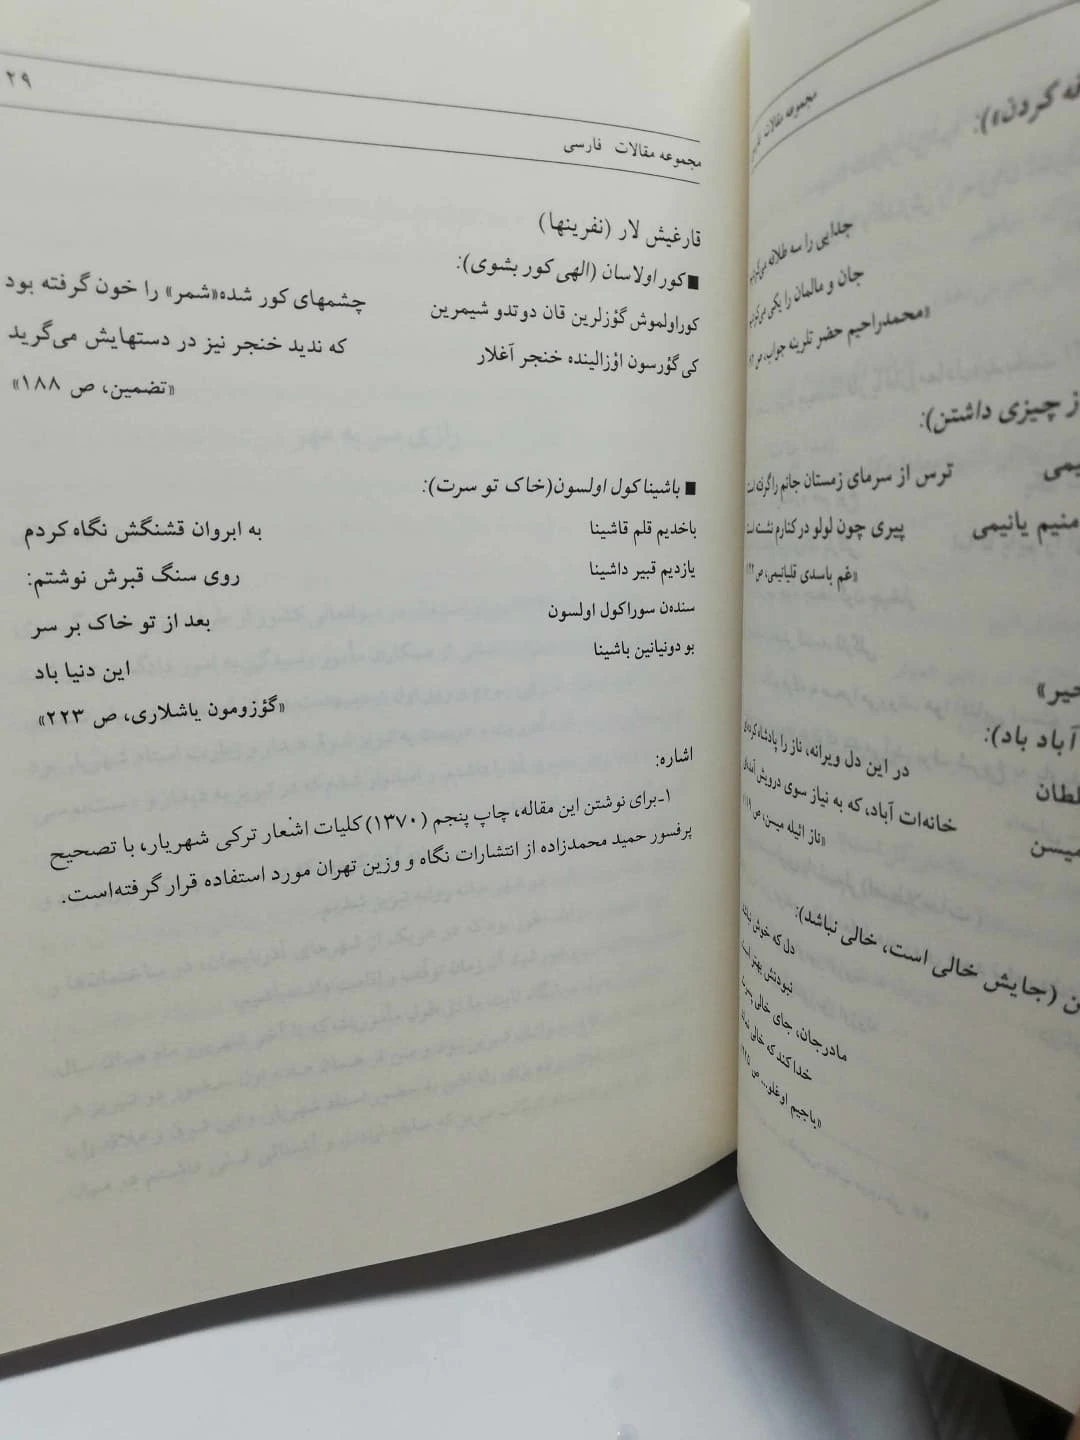 مجموعه مقالات فارسی
۲۹
قارغیش لار (نفرینها)
■ کور اولاسان (الهی کور بشوی):
کوراولموش گؤزلرین قان دوتدو شیمرین
چشمهای کور شده«شمر» را خون گرفته بود
کی گؤرسون اؤزالینده خنجر آغلار
که ندید خنجر نیز در دستهایش می‌گرید
«تضمین، ص ۱۸۸»
■ باشیناکول اولسون(خاک تو سرت):
باخدیم قلم قاشینا
به ابروان قشنگش نگاه کردم
یازدیم قبیر داشینا
روی سنگ قبرش نوشتم:
سنده‌ن سوراکول اولسون
بعد از تو خاک بر سر
بو دونیانین باشینا
این دنیا باد
«گؤزومون یاشلاری، ص ۲۲۳»
اشاره:
۱-برای نوشتن این مقاله، چاپ پنجم (۱۳۷۰) کلیات اشعار ترکی شهریار، با تصحیح
پرفسور حمید محمدزاده از انتشارات نگاه و وزین تهران مورد استفاده قرار گرفته‌است.
مجموعه مقالات
کردن»):
جدایی را سه طلاقه می‌کردیم
جان و مالمان را یکی می‌کردیم
«محمدراحیم حضر تلرینه جواب، ص
ز چیزی داشتن):
ترس از سرمای زمستان جانم را گرفته است
منیم یانیمی
پیری چون لولو در کنارم نشسته است
«غم باسدی قلیانیمی، ص
آباد باد):
در این دل ویرانه، ناز را پادشاه کرده‌ای
خانه‌ات آباد، که به نیاز سوی درویش آمده‌ای
«ناز ائیله میسن، ص
(جایش خالی است، خالی نباشد):
دل که خوش نباشد
نبودنش بهتر است
مادرجان، جای خالی
خدا کند که خالی نماند
«باجیم اوغلو... ص